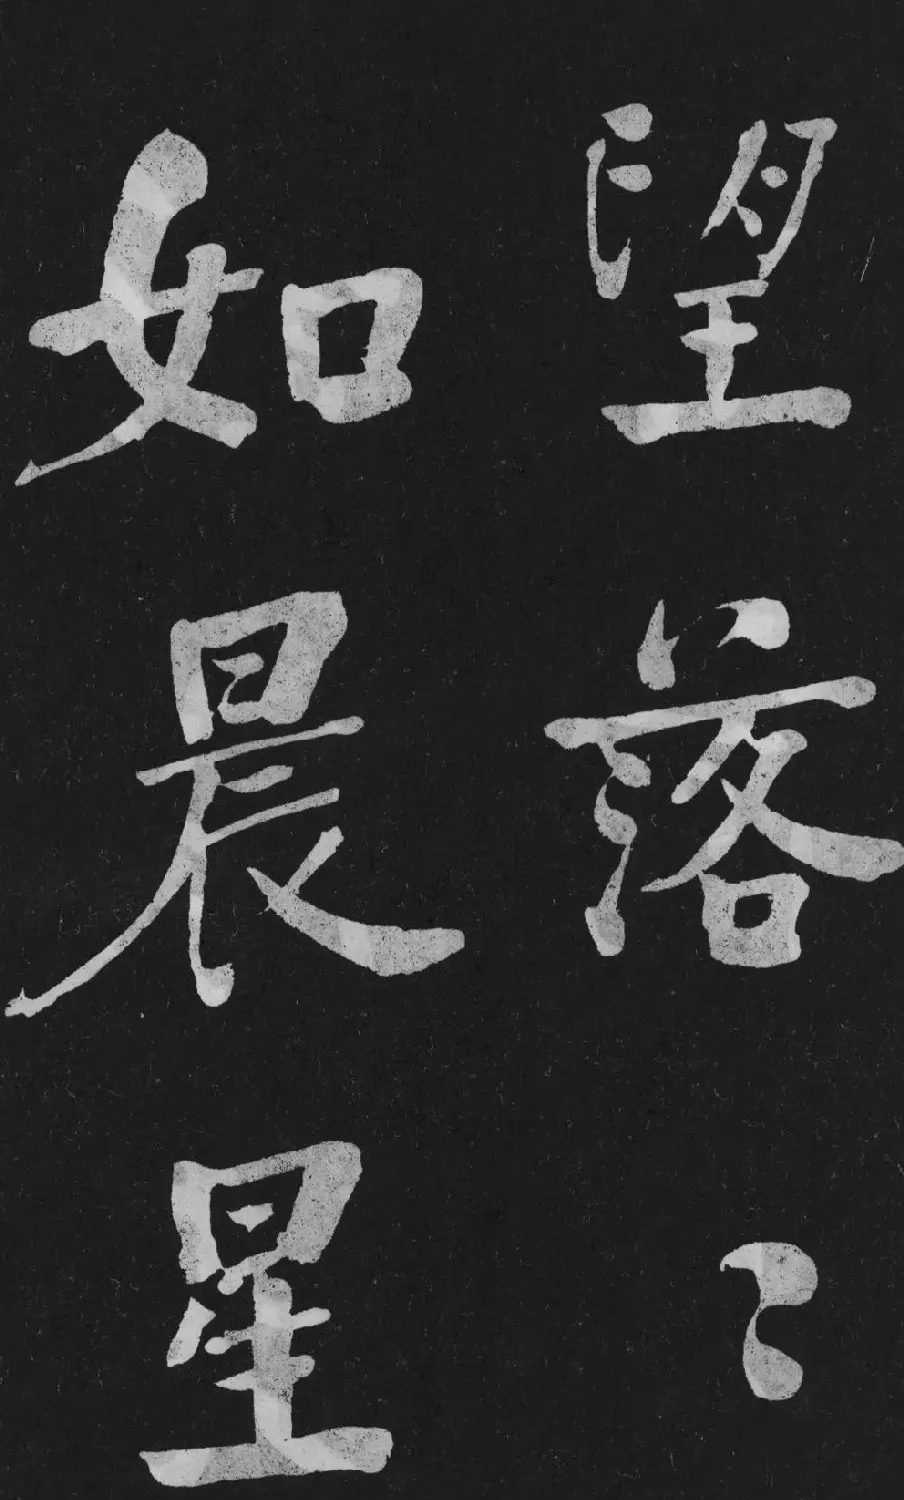 望落〻
如晨星